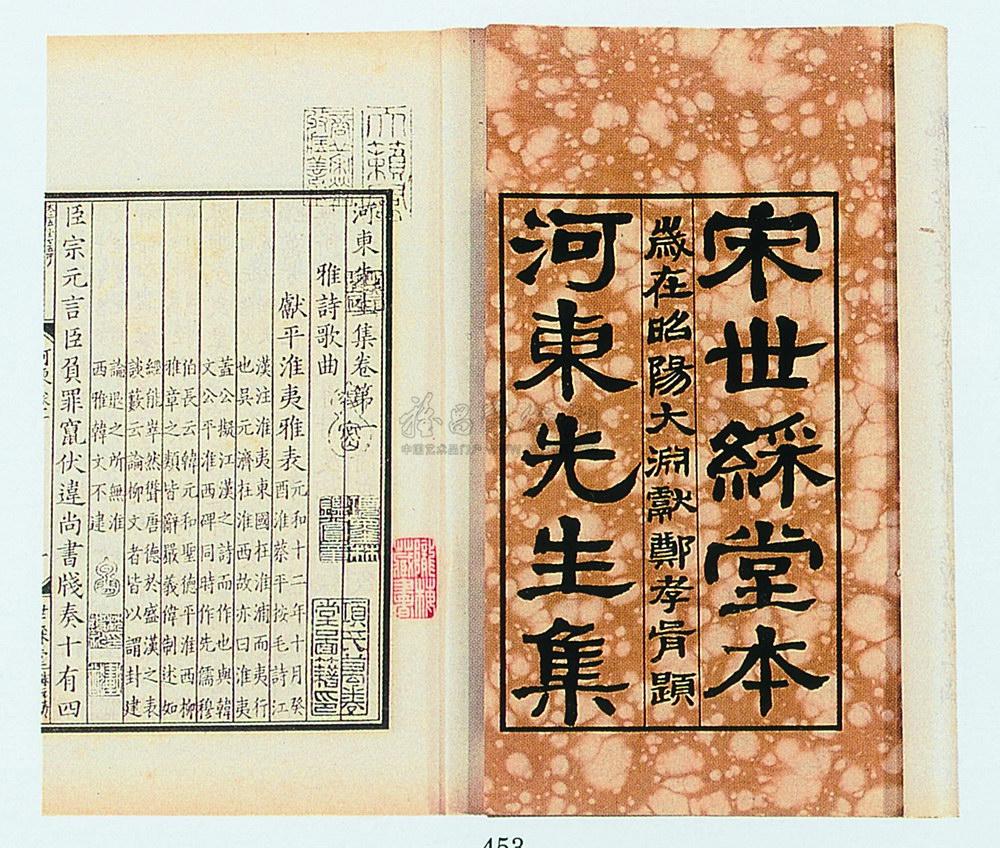 宋世綵堂本
歲在昭陽大淵獻鄭孝胥題
河東先生集
河東先生集卷第一
雅詩歌曲
獻平淮夷雅表
元和十二年十月癸
酉淮蔡平按毛詩江
漢注淮夷東國在淮浦而夷行
也吳元濟在淮西故亦曰淮夷
蓋公擬江漢之詩而作也與韓
文公平淮西碑同時作先儒穆
伯長云韓元和聖德平淮西柳
雅章之類皆辭嚴義偉制述如
經能崒然聳唐德於盛漢之表
談藪云論柳文者皆以謂封建
論退之所無淮
西雅韓文不逮
臣宗元言臣負罪竄伏違尚書牋奏十有四
項氏萬卷
堂圖籍印
藏書
453